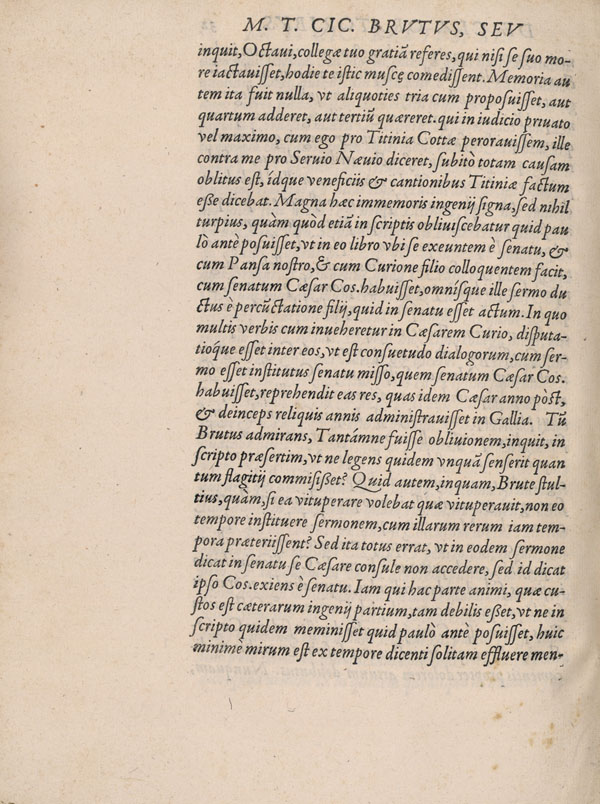 M. T. CIC. BRVTVS, SEV
inquit, Octaui, collegæ tuo gratiã referes, qui nisi se suo mo-
re iactauisset, hodie te istic muscę comedissent. Memoria au
tem ita fuit nulla, vt aliquoties tria cum proposuisset, aut
quartum adderet, aut tertiũ quæreret. qui in iudicio priuato
vel maximo, cum ego pro Titinia Cottæ perorauissem, ille
contra me pro Seruio Næuio diceret, subitò totam causam
oblitus est, ídque veneficiis & cantionibus Titiniæ factum
esse dicebat. Magna hæc immemoris ingenij signa, sed nihil
turpius, quàm quòd etiã in scriptis obliuiscebatur quid pau
lò antè posuisset, vt in eo libro vbi se exeuntem è senatu, &
cum Pansa nostro, & cum Curione filio colloquentem facit,
cum senatum Cæsar Cos. habuisset, omnísque ille sermo du
ctus è percũctatione filij, quid in senatu esset actum. In quo
multis verbis cum inueheretur in Cæsarem Curio, disputa-
tioq́ue esset inter eos, vt est consuetudo dialogorum, cum ser-
mo esset institutus senatu misso, quem senatum Cæsar Cos.
habuisset, reprehendit eas res, quas idem Cæsar anno pòst,
& deinceps reliquis annis administrauisset in Gallia. Tũ
Brutus admirans, Tantámne fuisse obliuionem, inquit, in
scripto præsertim, vt ne legens quidem vnquã senserit quan
tum flagitij commisisset? Quid autem, inquam, Brute stul-
tius, quàm, si ea vituperare volebat quæ vituperauit, non eo
tempore instituere sermonem, cum illarum rerum iam tem-
pora præteriissent? Sed ita totus errat, vt in eodem sermone
dicat in senatu se Cæsare consule non accedere, sed id dicat
ipso Cos. exiens è senatu. Iam qui hac parte animi, quæ cu-
stos est cæterarum ingenij partium, tam debilis esset, vt ne in
scripto quidem meminisset quid paulò antè posuisset, huic
minimè mirum est ex tempore dicenti solitam effluere men-